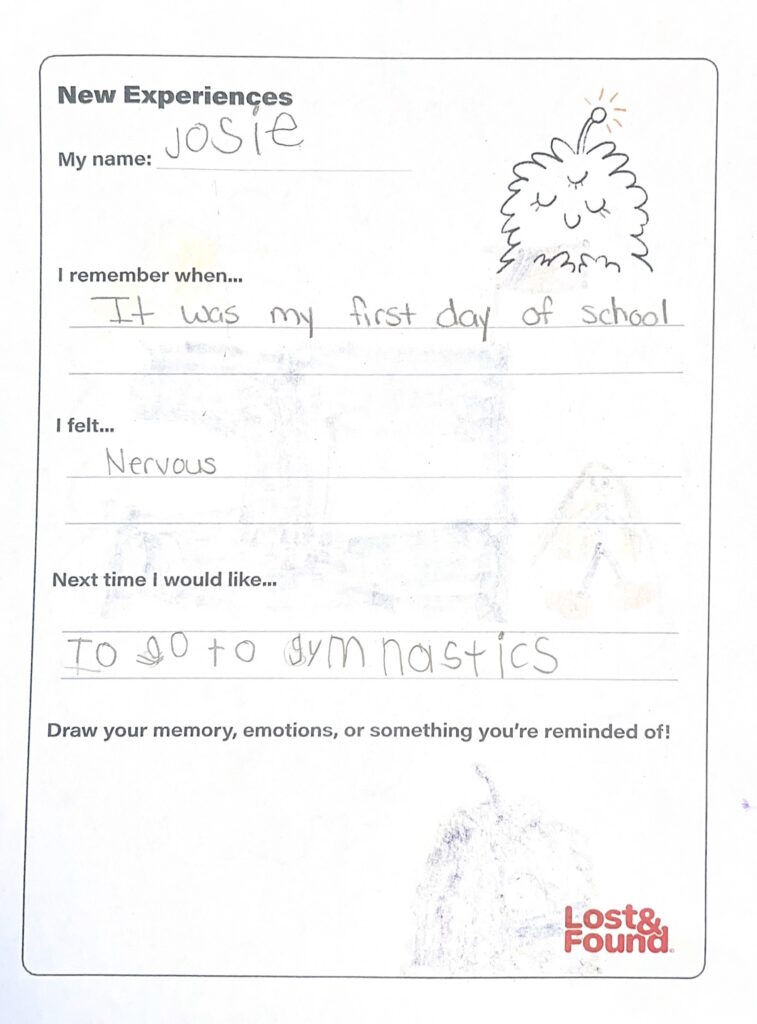 New Experiences
My name: Josie
I remember when...
It was my first day of school
I felt...
Nervous
Next time I would like...
To go to gymnastics
Draw your memory, emotions, or something you're reminded of!
Lost&
Found